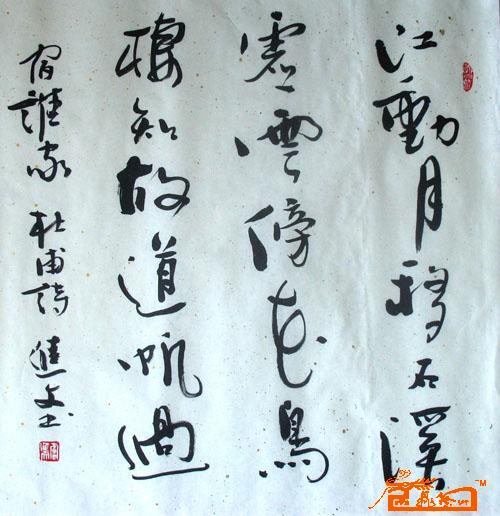 江動月移石溪
虛雲傍花鳥
棲知故道帆過
宿誰家 杜甫詩 文书
TM